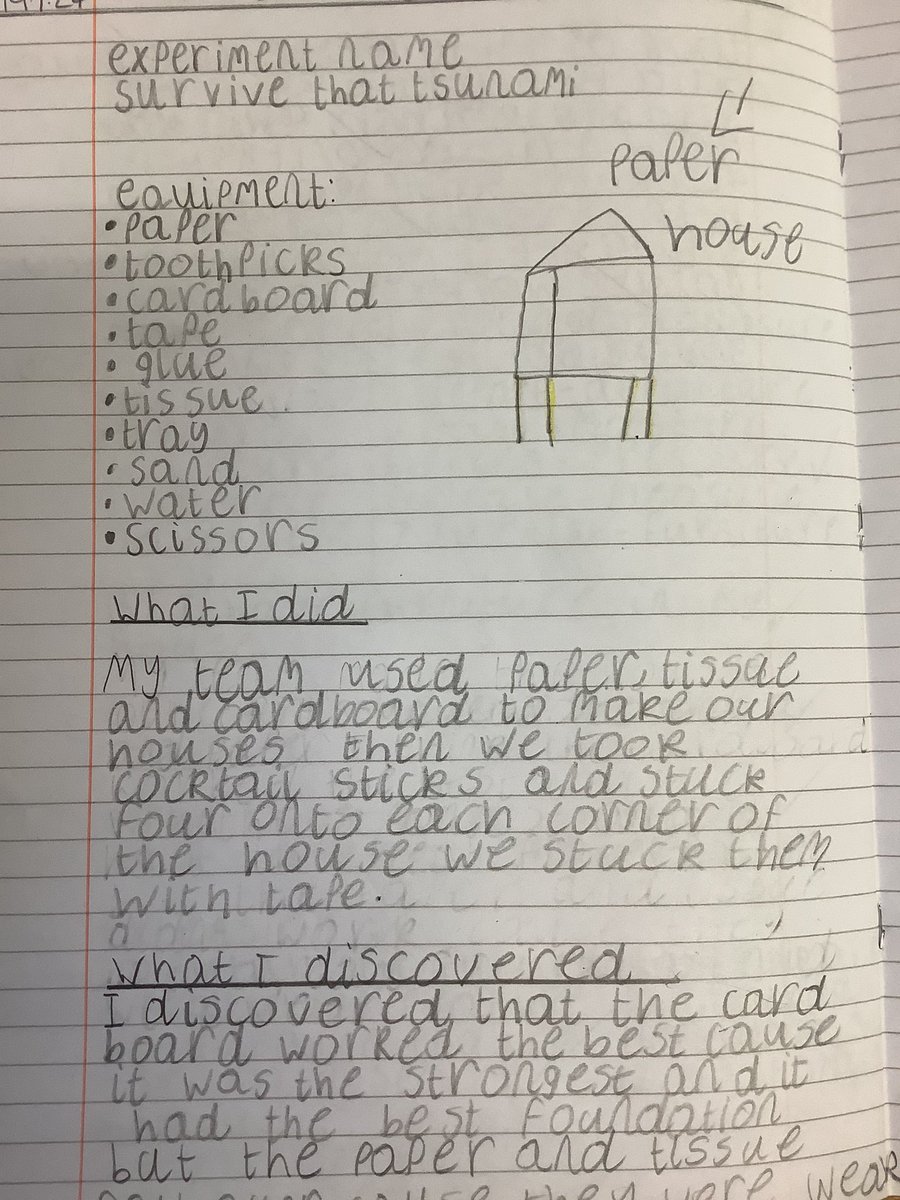 experiment name
survive that tsunami
paper
house
equipment:
• paper
• toothpicks
• cardboard
• tape
• glue
• tissue
• tray
• sand
• water
• scissors
What I did
My team used paper, tissue
and cardboard to make our
houses then we took
cocktail sticks and stuck
four onto each corner of
the house we stuck them
with tape.
What I discovered
I discovered that the card
board worked the best cause
it was the strongest and it
had the best foundation
but the paper and tissue
cause they were weak